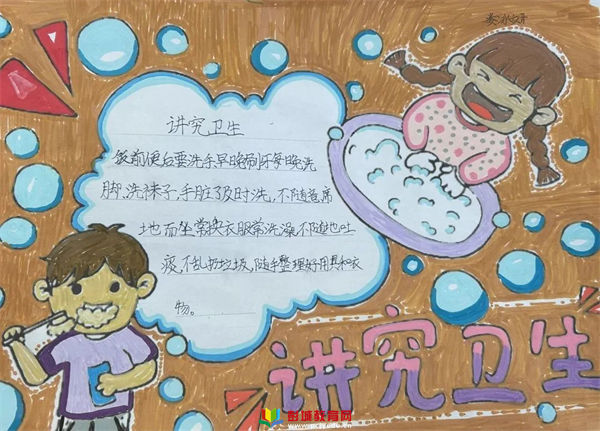 讲究卫生
饭前便后要洗手早晚刷牙,晚洗
脚,洗袜子,手脏了及时洗,不随意席
地而坐常换衣服常洗澡,不随地吐
痰,不乱扔垃圾,随手整理好用具和衣
物。
讲究卫生
彭城教育网